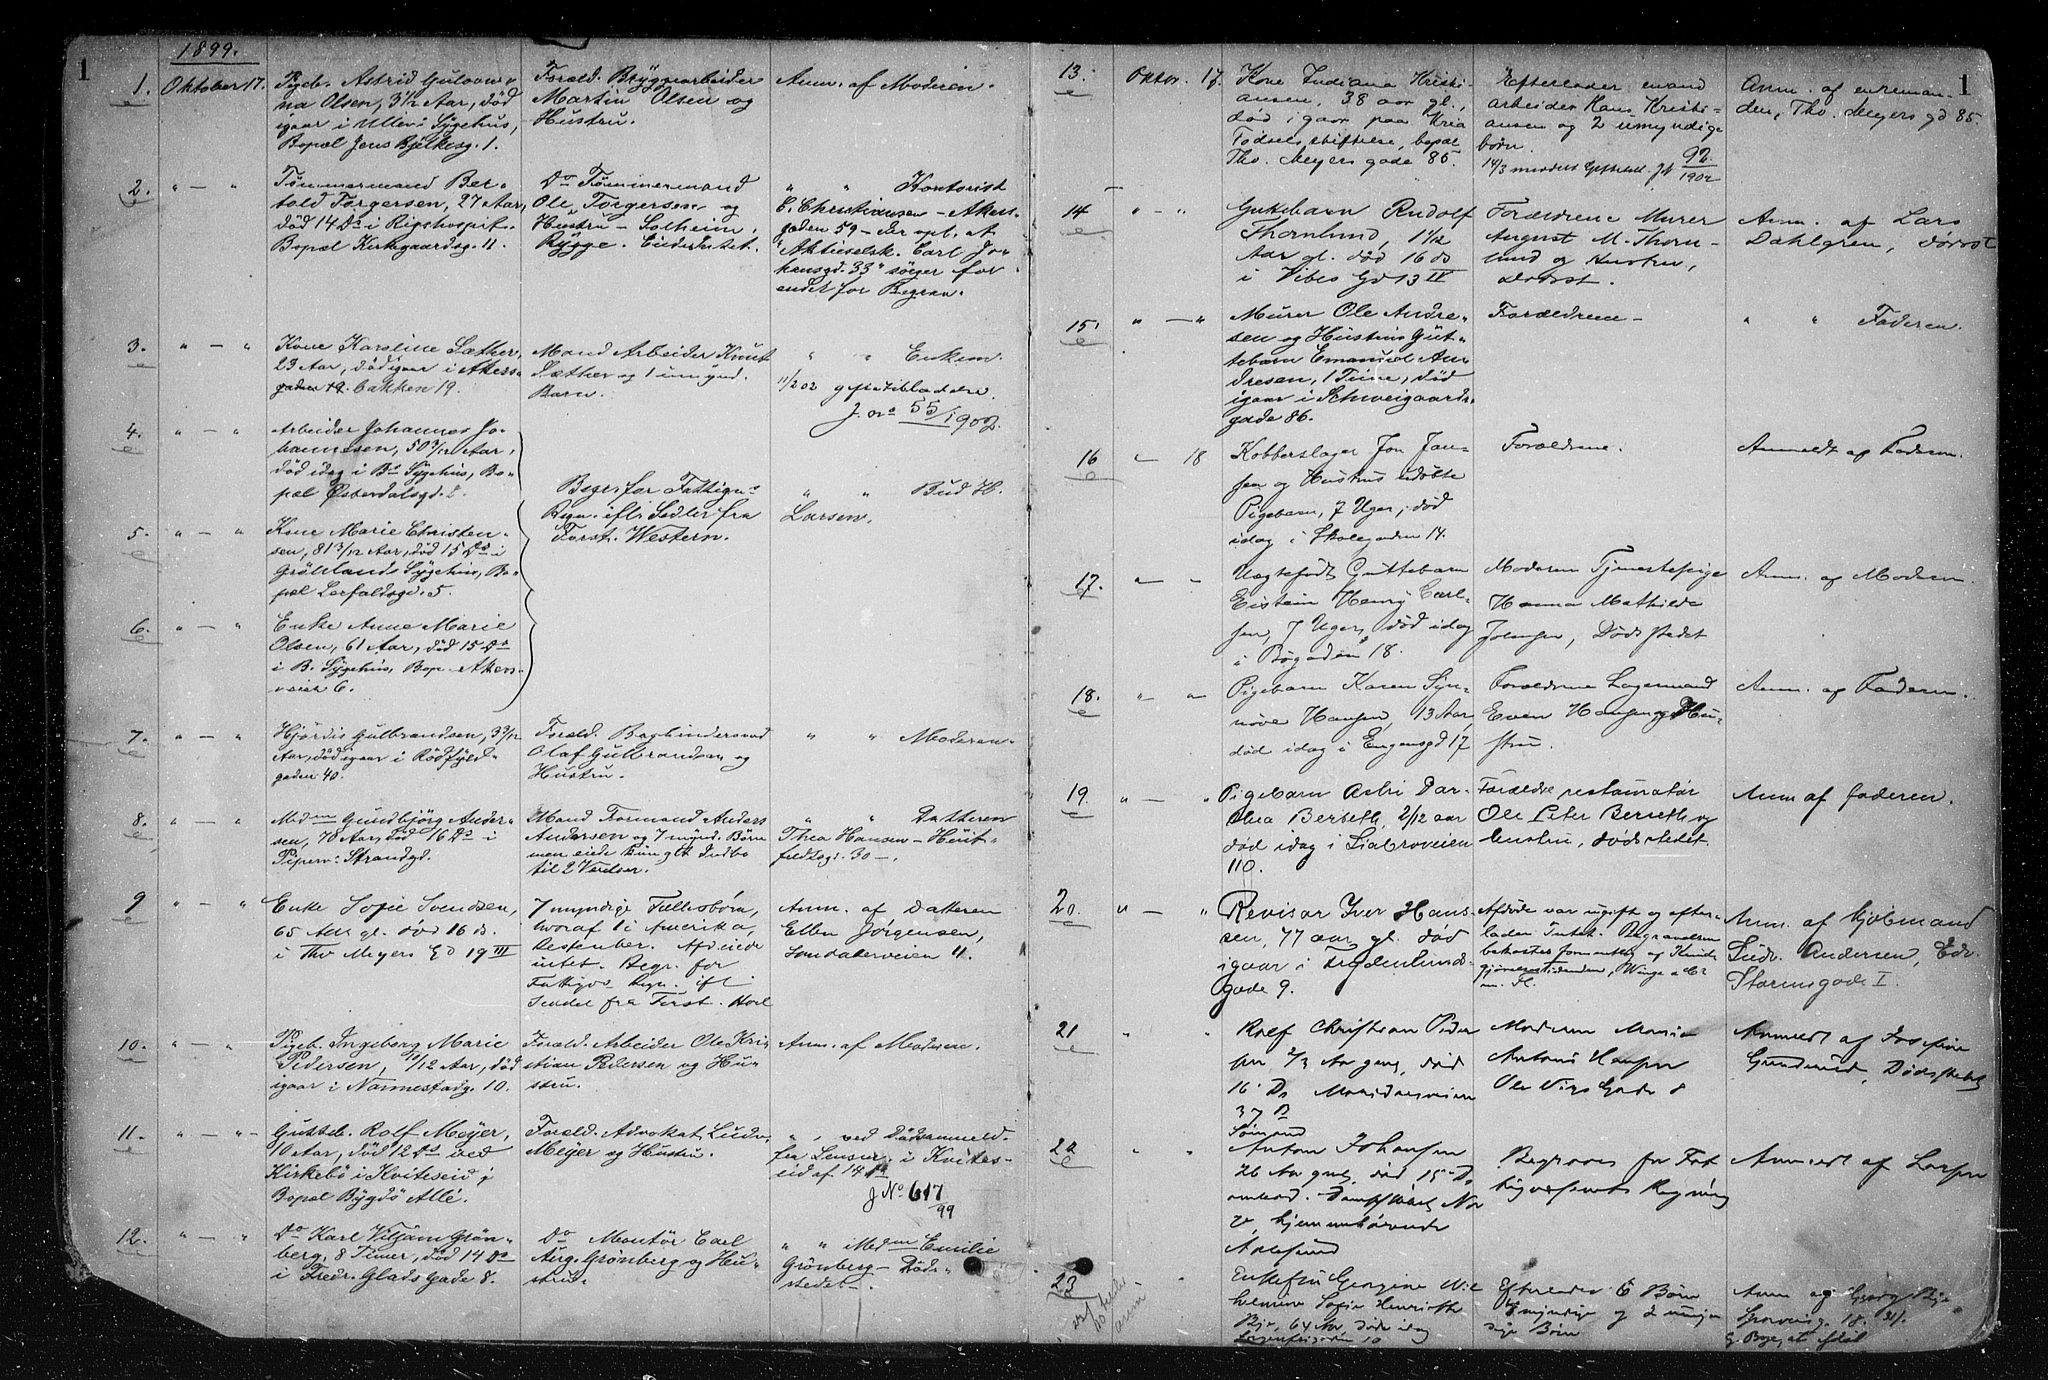 1
1899.
1. Oktober 17. Pigeb. Astrid Gulovine
Olsen, 3 1/2 Aar, död
igaar i Ullev. Sygehus,
Bopæl Jens Bjelkesg. 1.
Foræld. Bryggearbeider
Martin Olsen og
Hustru.
Anm. af Moderen.
2. " — " Tømmermand Ber-
told Torgersen, 27 Aar,
död 14 Ds i Rigshospit.
Bopæl Kirkegaardsg. 11.
Do Tømmermand
Ole Torgersen og
Hustru - Solheim,
Rygge.
" " Kontorist
C. Christiansen - Akers-
gaden 59 - der opl. at
"Aktieselsk. Carl Jo-
hansgd. 33" søger for
andet for Begrav.
3. " — " Kone Karoline Sæther,
23 Aar, död igaar i Akers-
gaden 19. bakken 19.
Mand Arbeider Knut
Sæther og 1 umynd.
Barn.
" " Enkem.
11/2 02
J. no 55/1902.
4. " — " Arbeider Johannes Jo-
hannesen, 50 3/12 Aar,
död idag i Bs Sygehus, Bo-
pæl Østerdalsgd. 8.
5. " — " Kone Marie Christen-
sen, 81 3/12 Aar, död 15 Ds i
Grönlands Sygehus, Bo-
pæl Lerfaldsgd. 5.
6. " — " Enke Anne Marie
Olsen, 61 Aar, död 15 Ds
i B. Sygehus, Bop. Akers-
veien 6.
Begr. for Fattigv.
Regn. ifl. Sedler fra
Forst. Western.
" " Bud H.
Larsen.
7. " — " Hjördis Gulbrandsen, 3 3/12
Aar, död igaar i Rödfyld-
gaden 40.
Foræld. Bogbindersvend
Olaf Gulbrandsen og
Hustru.
" " Moderen.
8. " — " Mdm Gundbjörg Ander-
sen, 70 Aar, död 16 Ds i
Piperv. Strandgd.
Mand Formand Anders
Andersen og 7 mynd. Börn
men eide kun gtl. Indbo
til 2 Værelser.
" " Datteren
Thea Hansen - Huit-
feldtsgd. 30 -.
9 " — " Enke Sofie Svendsen,
65 Aar gl. död 16 ds.
i Thv Meyers Gd 19 III
7 myndige Fællesbörn,
hvoraf 1 i Amerika,
Afd. eiede
intet. Begr. for
Fattigvs Regn. ifl
Seddel fra Forst. Hoel
Anm. af Datteren
Ellen Jörgensen,
Sandakerveien 11.
10. " — " Pigeb. Ingeborg Marie
Pedersen, 11/12 Aar, död
igaar i Nannestadg. 10.
Foræld. Arbeider Ole Kri-
stian Pedersen og Hu-
stru.
Anm. af Moderen.
11. " — " Gutteb. Rolf Meyer,
10 Aar, död 12 Ds ved
Kirkebö i Hviteseid;
Bopæl Bygdö Allé.
Foræld. Advokat Ludv.
Meyer og Hustru.
" , ved Dödsanmeld.
fra Lensm. i Kvites-
eid af 14 Ds
J No 617/99
12. " — " Do Karl Viljam Grön-
berg, 8 Timer, död 14 Ds
i Fredr. Glads Gade 8.
Do Montör Carl
Aug. Grönberg og Hu-
stru.
" " Mdm Emilie
Grönberg - Döds-
stedet -
1
13. Oktbr. 17. Kone Indiana Kristi-
ansen, 38 aar gl.,
død igaar paa Kria
Fødselsstiftelse, bopæl
Thv. Meyers gade 85.
Efterlader mand
arbeider Hans Kristi-
ansen og 2 umyndige
børn.
14/3 92/1902
Anm. af enkeman-
den, Thv. Meyers gd 85.
14 " — " Guttebarn Rudolf
Thornlund, 1 1/12
Aar gl. død 16 ds
i Vibes Gd 13 IV
Forældrene Murer
August M. Thorn-
lund og Hustru,
Anm. af Lars
Dahlgren,
15. " — " Murer Ole Andre-
sen og Hustrus Gut-
tebarn Emanuel An-
dresen, 1 Time, död
igaar i Schweigaards-
gade 86.
Forældrene -
" " Faderen.
16 " — 18 Kobberslager Jon Jan-
sen og Hustrus udöbte
Pigebarn, 7 Uger, död
idag i Skolegaden 14.
Forældrene.
Anmeldt af Faderen.
17. " — " Uægtefødt Guttebarn
Eistein Henry Carl-
sen, 7 Uger, död idag
i Bögaden 18.
Moderen Tjenestepige
Hanna Mathilde
Johansen, Dödsstedet
Anm. af Moderen.
18. " — " Pigebarn Karen Syn-
növe Hansen, 13 Aar,
död idag i Engensgd 17
Forældrene Lagermand
Even Hansen og Hu-
stru.
Anm. af Faderen.
19. " — " Pigebarn Astri Dar-
thea Berseth, 2/12 aar
død idag i Ljabroveien
110.
Forældre restauratør
Ole Peter Berseth og
hustru, dødsstedet.
Anm af faderen.
20. " — " Revisor Iver Hans-
sen, 77 aar gl. død
igaar i Frydenlunds-
gade 9.
Afdøde var ugift og efter-
lader Intet. Begravelsen
bekostes formentlig af Kund-
gjørelsestidenden,
Anm. af Kjøbmand
Andersen, Edv.
Stormsgade I.
21 " " Rolf Christian Peder-
sen 2/3 Aar gml, död
16 Ds Maridalsveien
37 D
Moderen Maria
Antonie Hansen
Ole Vigs Gade 8
Anmeldt af Josefine
Gundersen, Dödsstedet
22 " " Sømand
Anton Johansen
26 Aar gml, död 15 Ds
ombord. Dampskibet No-
hjemmehørende
Aalesund
Begraves for Fat-
tigvæsenets Regning
Anmeldt af Larsen
23 " Enkefru Georgine Wil-
helmine Sofie Henriette
Bye, 64 Aar døde idag
10
Efterlader 6 Børn
4 myndige og 2 umyn-
dige Børn
Anm af Georg Bye
18. 31/
G. Bye,